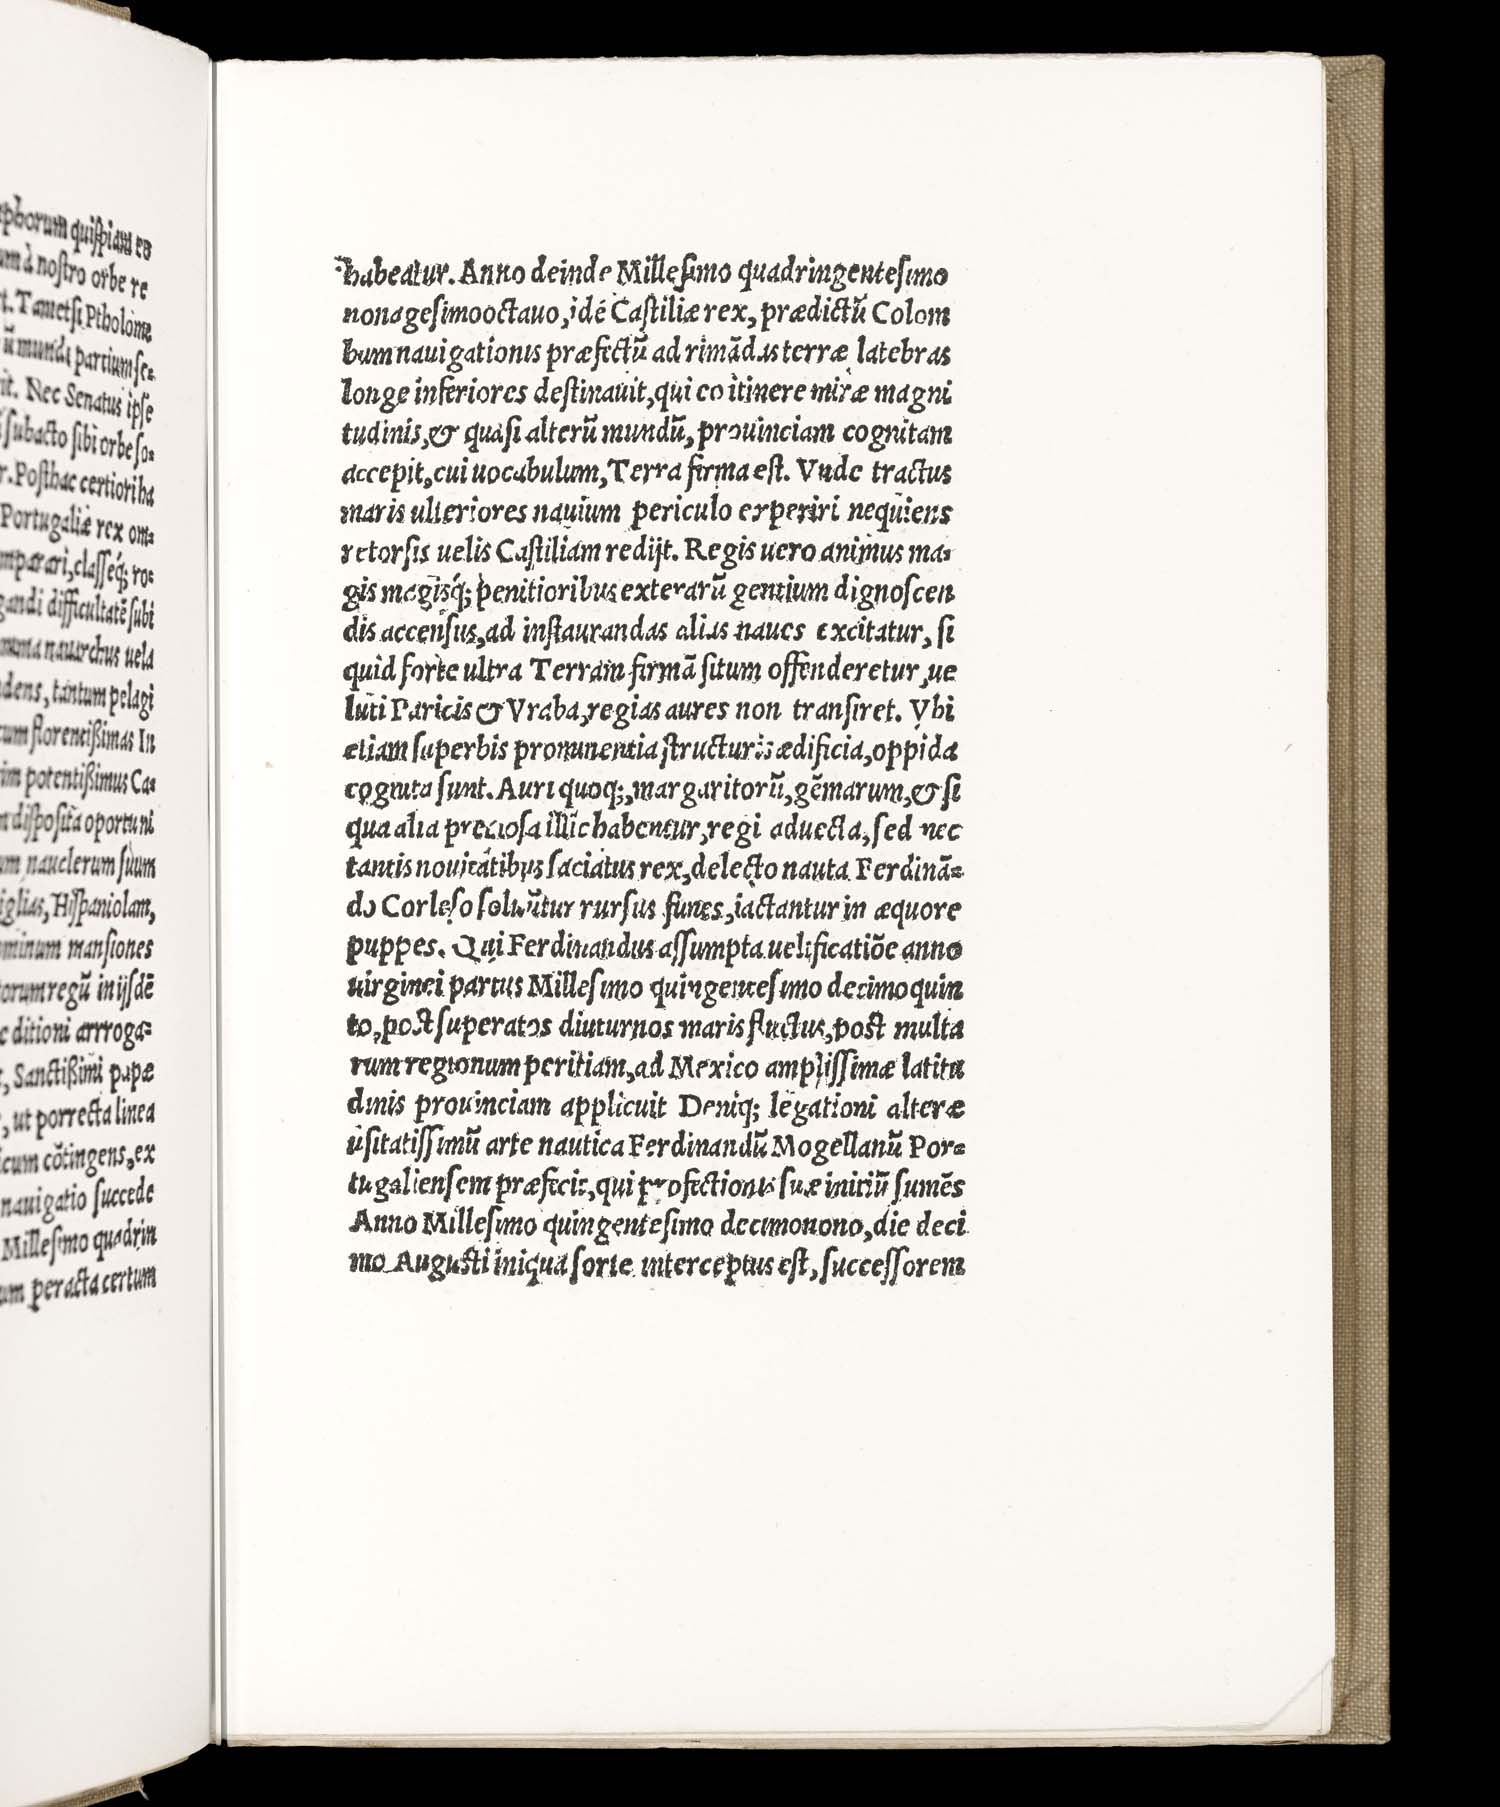 phorum quiſpiam eo
um à noſtro orbe re
t. Tametſi Ptholome
ũ mundi partium ſe-
rit. Nec Senatus ipſe
ſubacto ſibi orbe ſo-
r. Poſthac certiori ha
Portugaliæ rex om-
mparari, claſſéq; ro-
gandi difficultatẽ ſubi
nauarchus uela
dens, tantum pelagi
cum florentißimas In
im potentißimus Ca-
diſpoſita oportuni
um nauclerum ſuum
iglias, Hiſpaniolam,
minum manſiones
torum regũ in ijſdẽ
c ditioni arrroga-
, Sanctißimi papæ
, ut porrecta linea
icum cõtingens, ex
nauigatio ſuccede
Milleſimo quadrin
um peracta certum
habeatur. Anno deinde Milleſimo quadringenteſimo
nonageſimooctauo, idé Caſtiliæ rex, prædictũ Colom
bum nauigationis præfectũ ad rimãdas terræ latebras
longe inferiores deſtinauit, qui eo itinere miræ magni
tudinis, & quaſi alterũ mundũ, prouinciam cognitam
accepit, cui uocabulum, Terra firma eſt. Vnde tractus
maris ulteriores nauium periculo experiri nequiens
retorſis uelis Caſtiliam redijt. Regis uero animus ma-
gis magisq́; penitioribus exterarũ gentium dignoſcen
dis accenſus, ad inſtaurandas alias naues excitatur, ſi
quid forte ultra Terram firmã ſitum offenderetur, ue
luti Paricis & Vraba, regias aures non tranſiret. Vbi
etiam ſuperbis prominentia ſtructuris ædificia, oppida
cognita ſunt. Auri quoq;, margaritorũ, gẽmarum, & ſi
qua alia precioſa illic habentur, regi aduecta, ſed nec
tantis nouitatibus ſaciatus rex, delecto nauta Ferdinã-
do Corleſo ſoluũtur rurſus funes, iactantur in æquore
puppes. Qui Ferdinandus aſſumpta uelificatiõe anno
uirginei partus Milleſimo quingenteſimo decimoquin
to, poſt ſuperatos diuturnos maris fluctus, poſt multa
rum regionum peritiam, ad Mexico ampliſſimæ latitu
dinis prouinciam applicuit Deniq; legationi alteræ
uſitatiſſimũ arte nautica Ferdinandũ Mogellanũ Por-
tugalienſem præfecit, qui profectionis ſuæ initiũ ſumẽs
Anno Milleſimo quingenteſimo decimonono, die deci
mo Auguſti iniqua ſorte interceptus eſt, ſucceſſorem